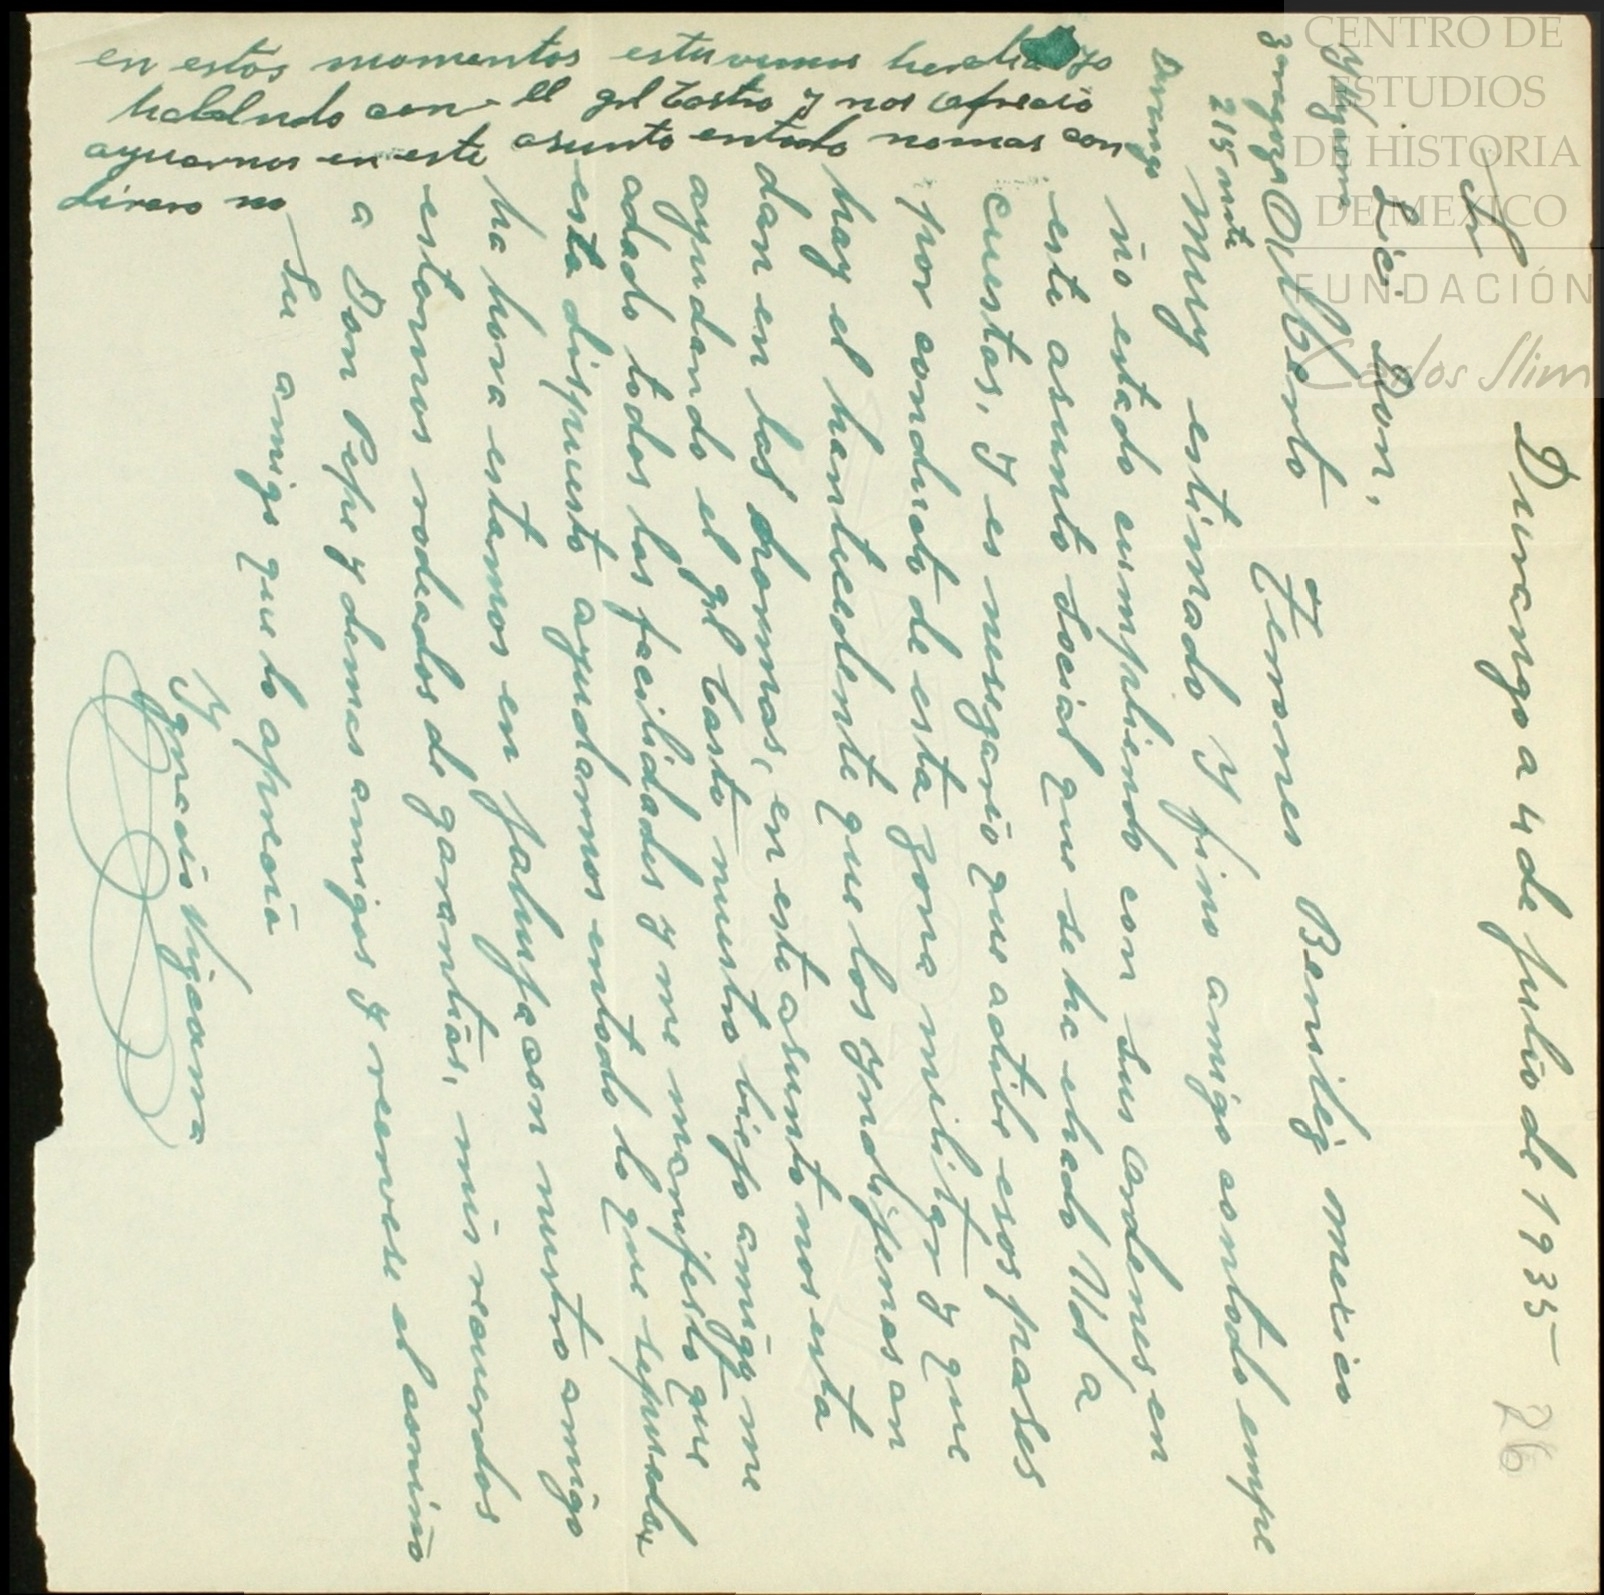 Durango a 4 de julio de 1935
26
Sr
Lic. Don,
Alberto Terrones Benitez mexico
Muy estimado y fino amigo contodo empe
ño estado cumpliendo con sus ordenes en
este asunto social que se ha echado Ud a
cuestas, y es nesesario que active esos pases
por conducto de esta zona militar y que
hay el hantecedente que los yndijenas an
dan en las hormas, en este asunto nos esta
ayudando el gral Castro nuestro biejo amigo me
adado todas las facilidades y me manifesto que
esta dispuesto ayudarnos entodo lo que sepueda
ha hora estamos en jalupa con nuestro amigo
estamos rodeados de garantias, mis recuerdos
a Don Pepe y demas amigos y reservese el cariño
Su amigo que lo aprecia
Ygnacio Nijaama
Zaragoza
215 norte
Durango
en estos momentos estuvimos yo
hablando con el gral Castro y nos ofrecio
ayuarnos en este asunto entodo nomas con
dinero no
CENTRO DE
ESTUDIOS
DE HISTORIA
DE MEXICO
FUNDACIÓN
Carlos Slim